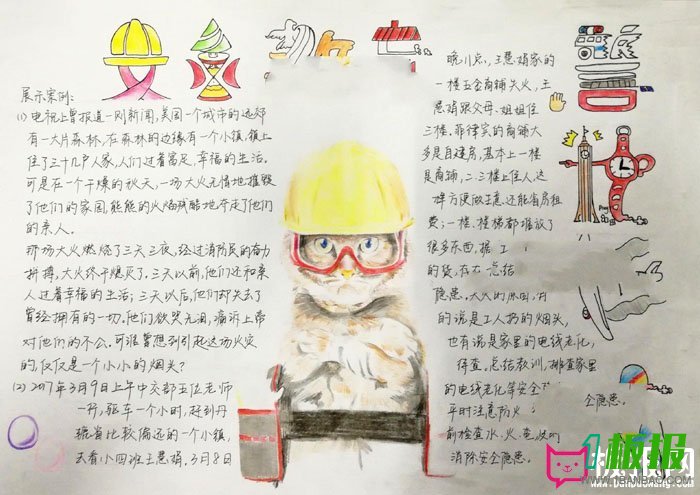 展示案例:
(1) 电视上曾报道一则新闻,美国一个城市的远郊
有一大片森林,在森林的边缘有一个小镇,镇上
住了三十几户人家,人们过着富足、幸福的生活。
可是在一个干燥的秋天,一场大火无情地摧毁
了他们的家园,熊熊的火焰残酷地夺走了他们
的亲人。
那场大火燃烧了三天三夜,经过消防员的奋力
拼搏,大火终于熄灭了。三天以前,他们还和亲
人过着幸福的生活;三天以后,他们却失去了
曾经拥有的一切。他们欲哭无泪,痛诉上帝
对他们的不公。可谁曾想到引起这场火灾
的,仅仅是一个小小的烟头?
(2) 2017年3月9日上午中交部五位老师
一行,驱车一个小时,赶到丹
辘省比较偏远的一个小镇,
去看小四班王慧娟,3月8日
晚川点,王慧娟家的
一楼五金商铺失火,王
慧娟跟父母、姐姐住
三楼。菲律宾的商铺大
多是自建房,基本上一楼
是商铺,二、三楼上住人,这
样方便做生意,还能省房租
费;一楼、楼梯都堆放了
很多东西,据 工
的货,在 总结
隐患,大火的原因,有
的说是工人扔的烟头,
也有说是家里的电线老化,
待查。总结教训,排查家里
的电线老化等安全
全隐患。
平时注意防火
前检查水、火、煤
消除安全隐患。
1板报
WWW.1BANBAO.COM